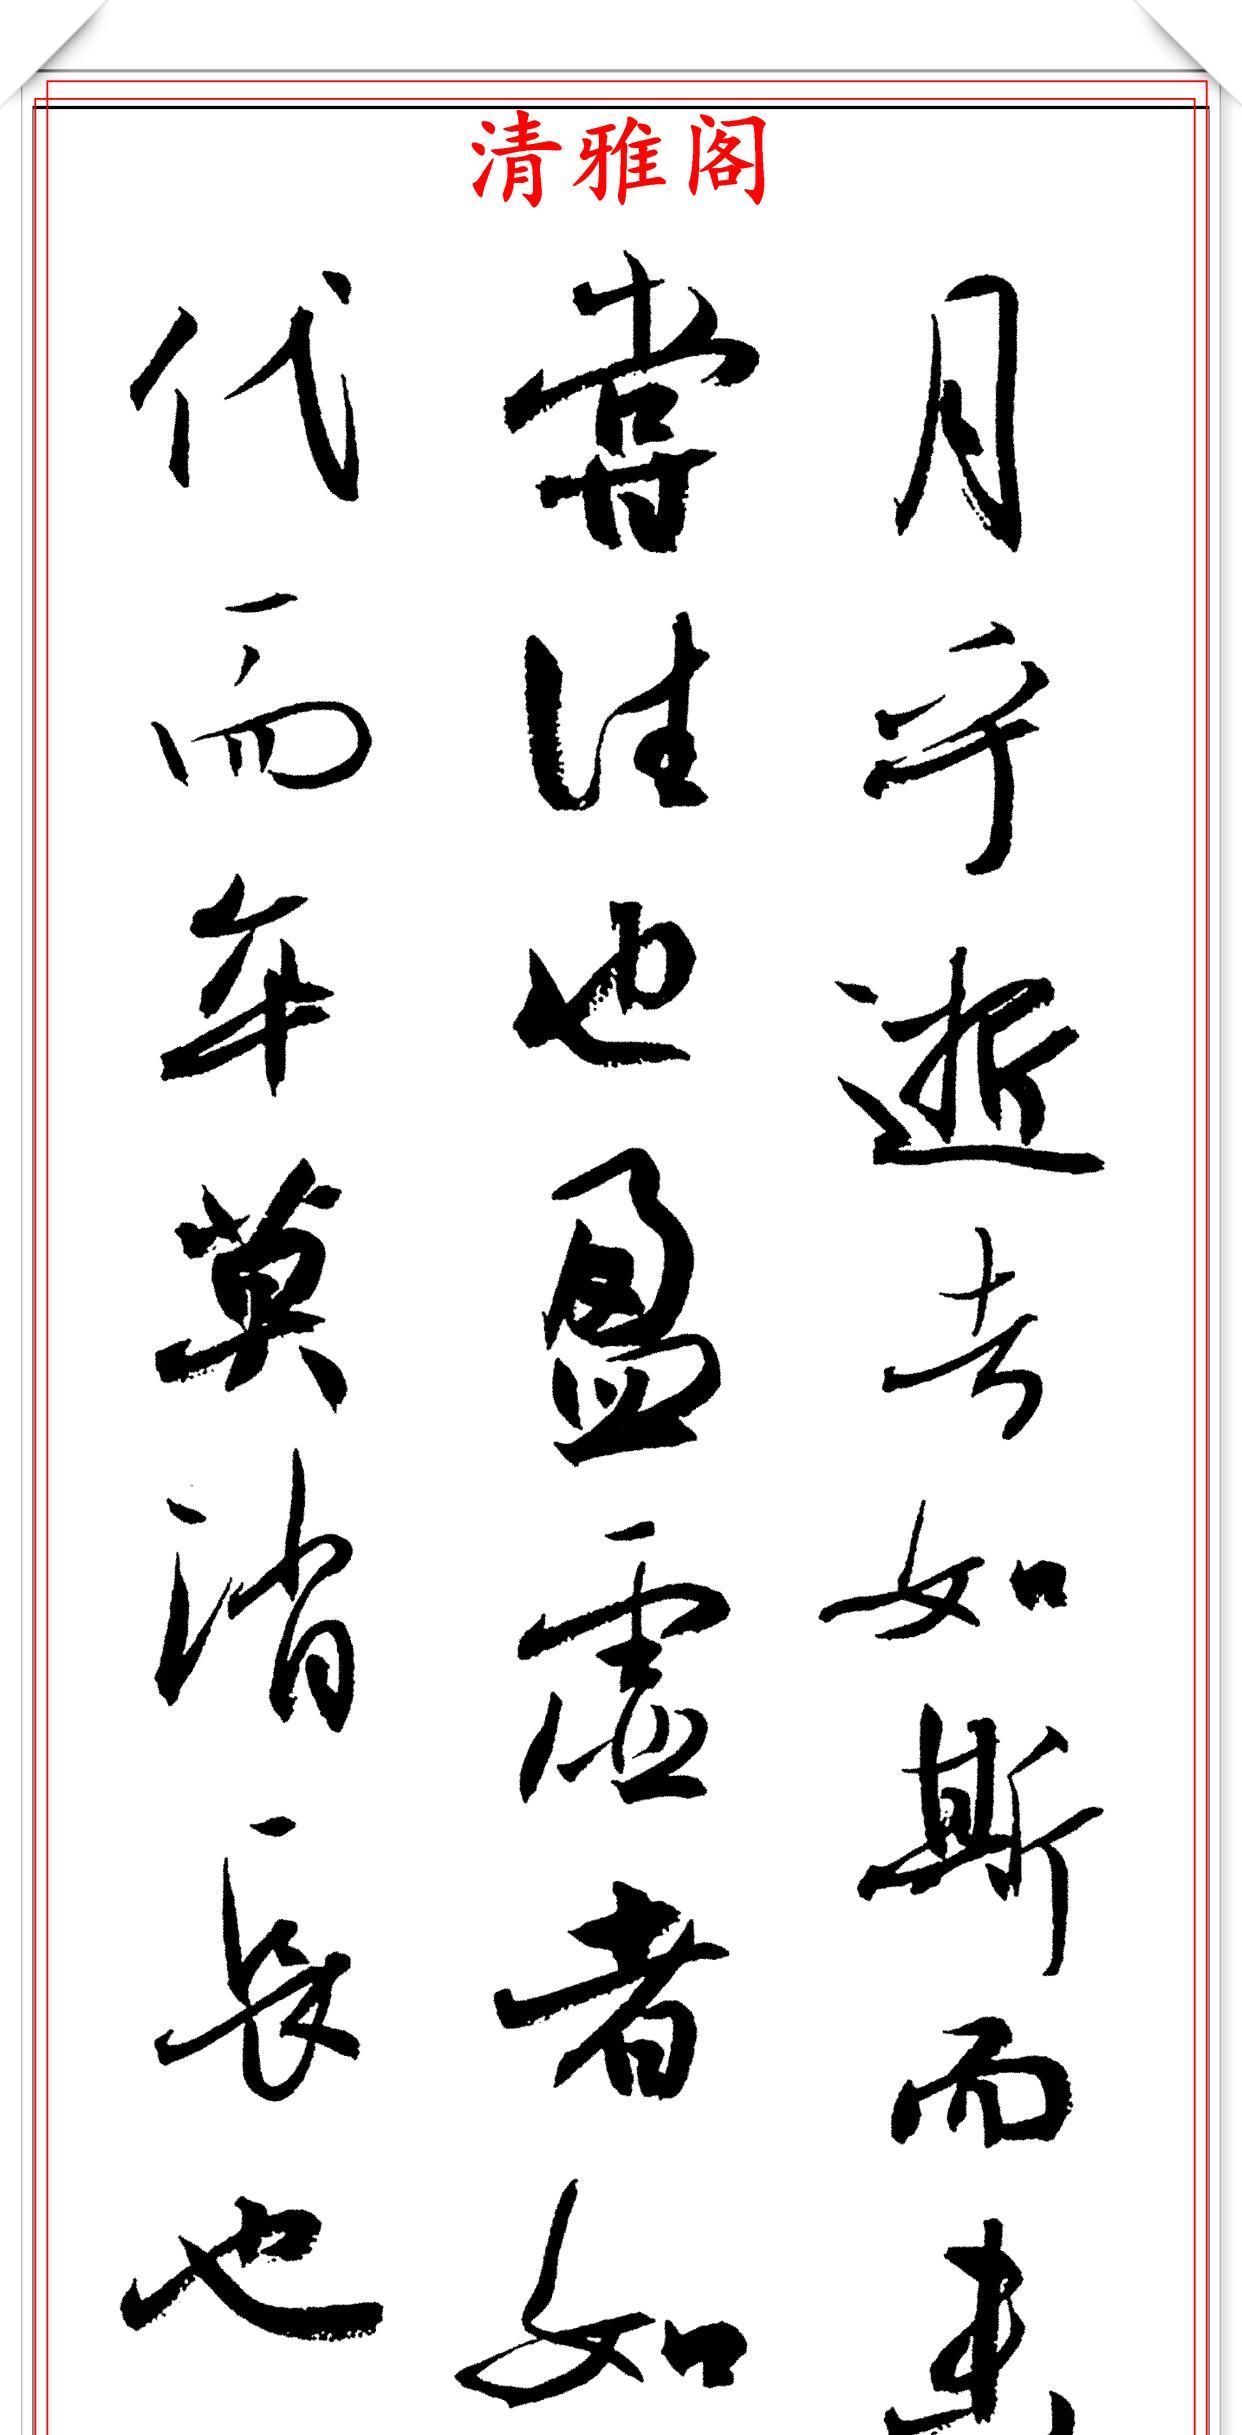 清雅阁
月乎逝去如斯而未
嘗往也盈虚者如
代而卒莫消长也